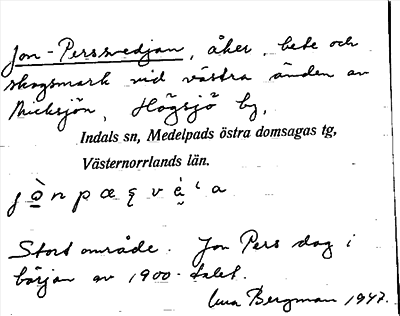 Jon-Perssvedjan, åker, bete och
skogsmark vid västra änden av
Mucksjön, Högsjö by,
Indals sn, Medelpads östra domsagas tg,
Västernorrlands län.
Stort område. Jon Pers dog i
början av 1900-talet.
Bergman 1947.